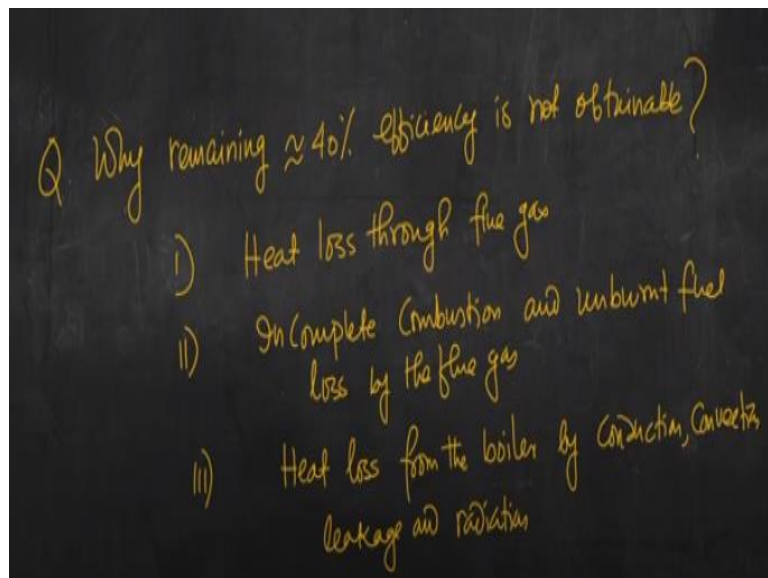 Q. Why remaining ≈ 40% efficiency is not obtainable?
I) Heat loss through flue gas
II) Incomplete Combustion and unburnt fuel
loss by the flue gas
III) Heat loss from the boiler by conduction, Convection,
leakage and radiation